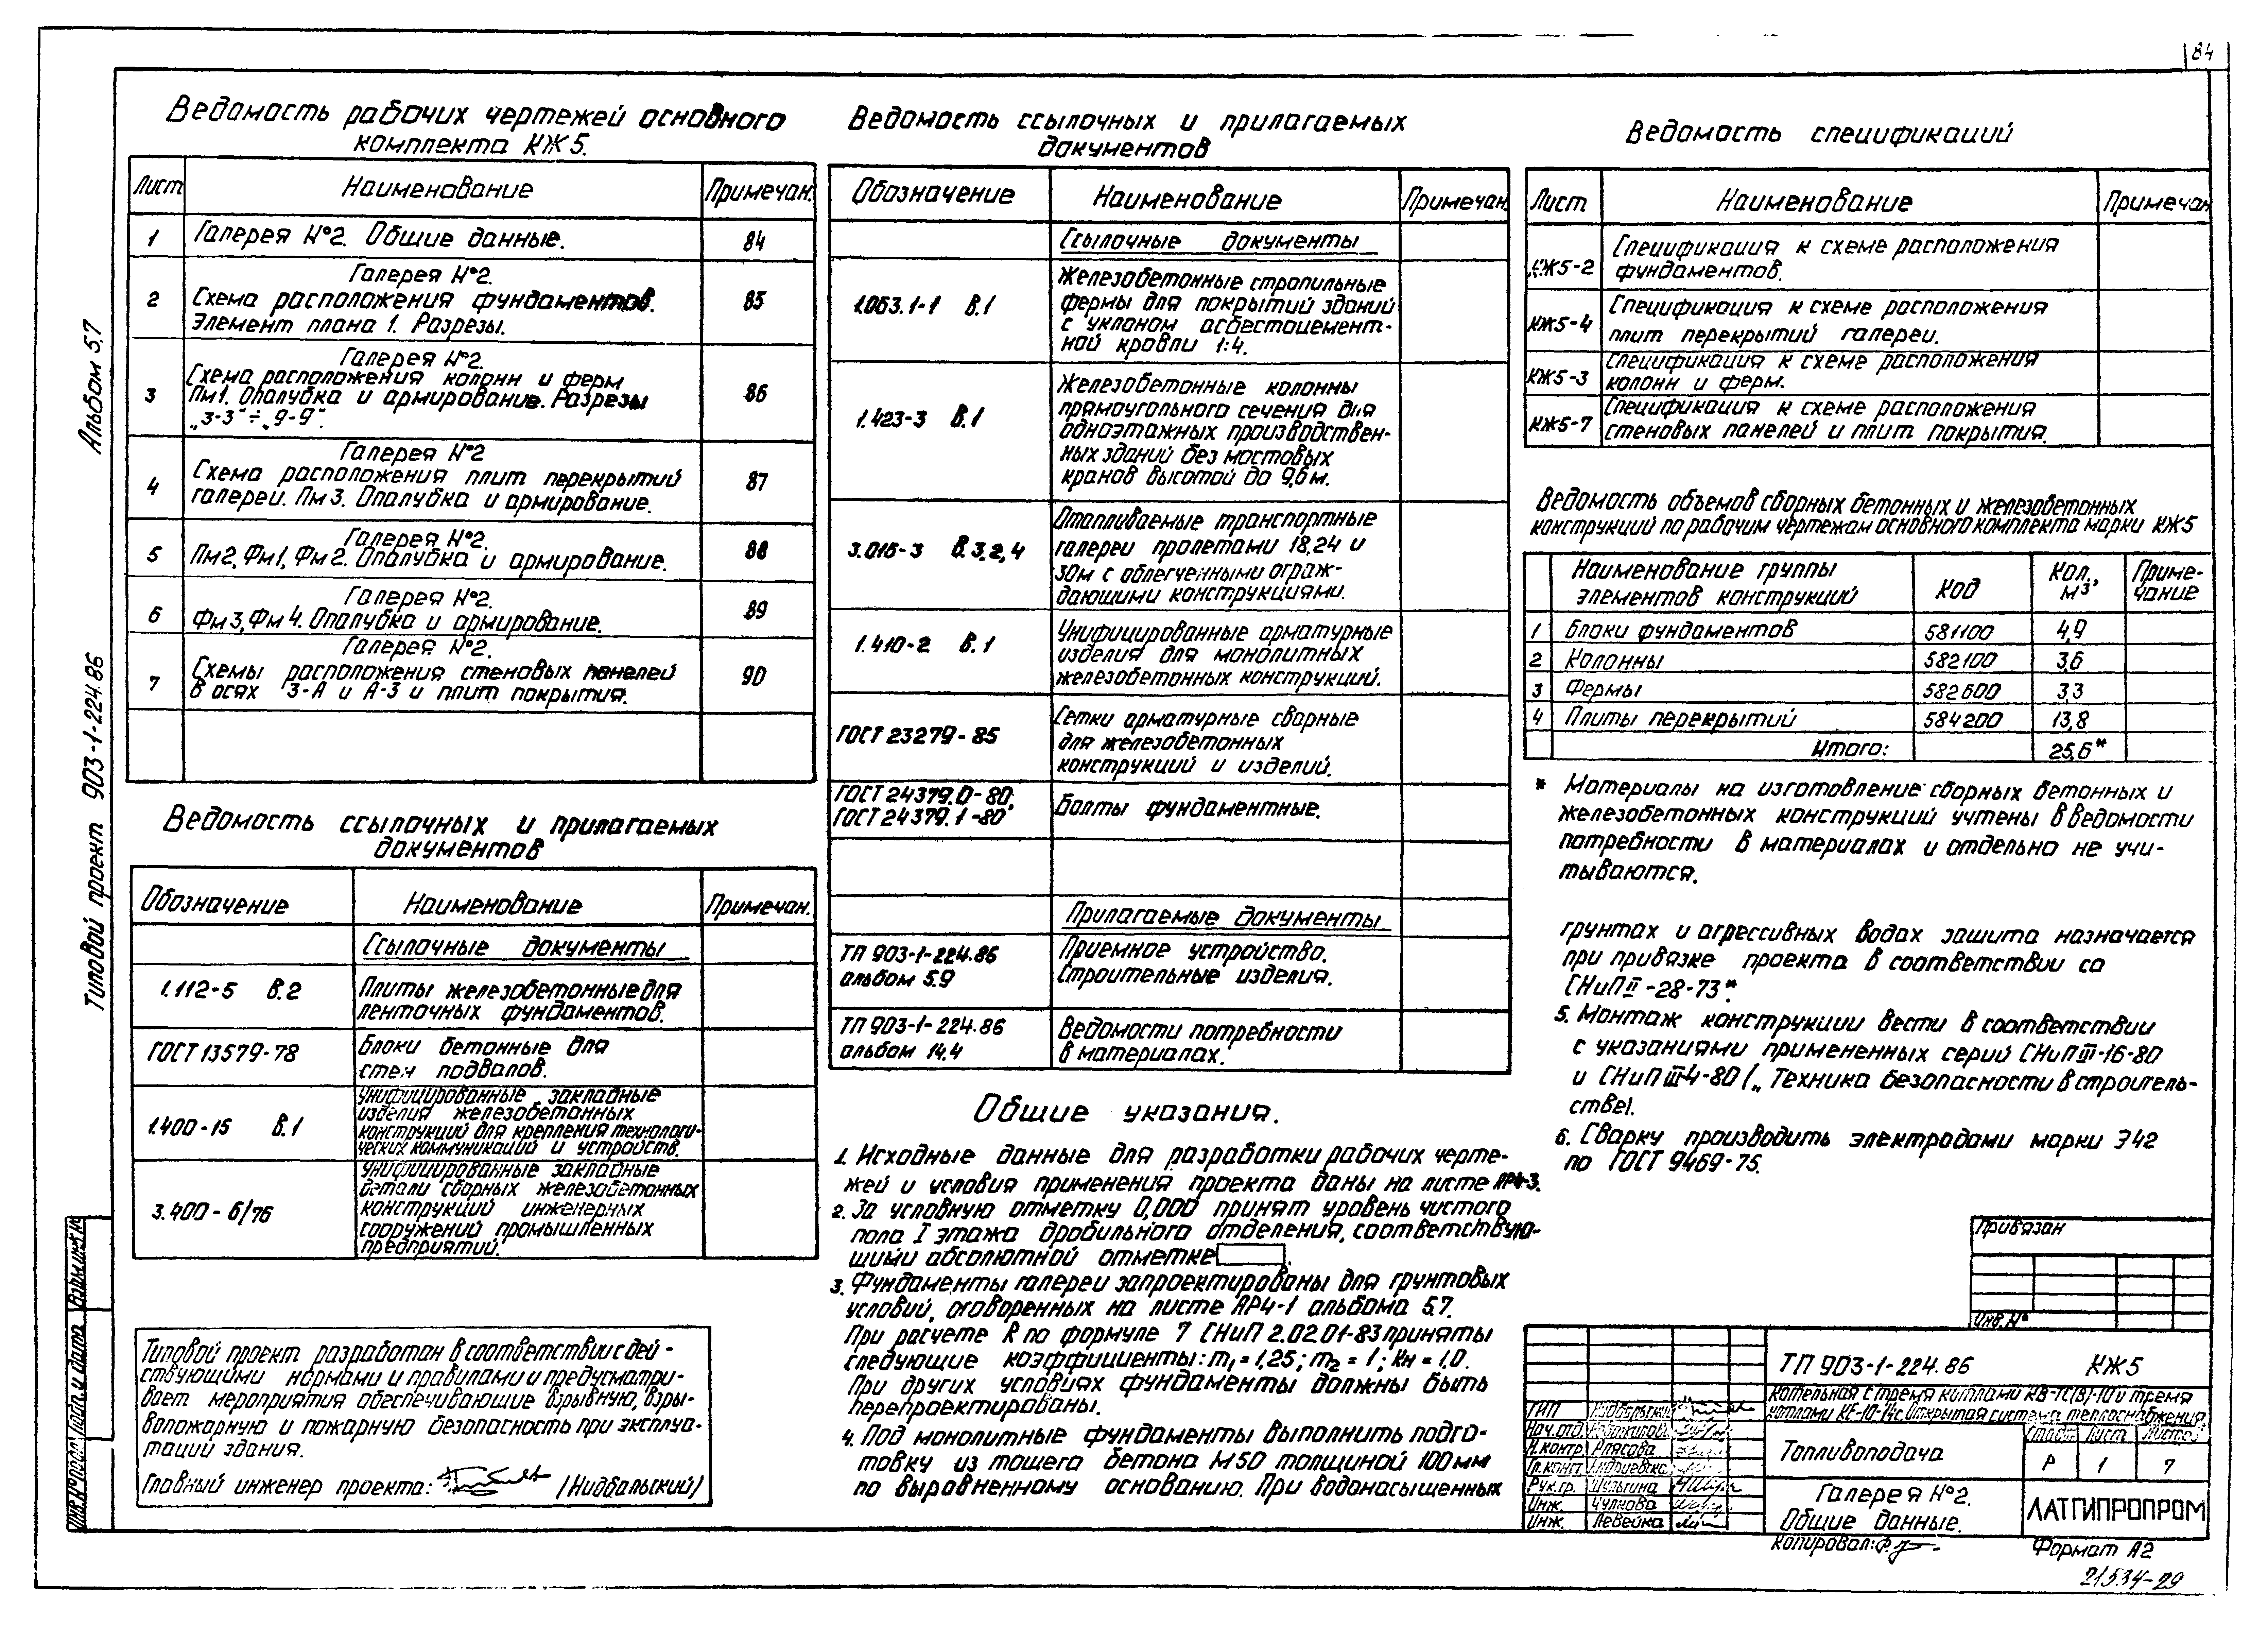 84
Альбом 5.7
Типовой проект 903-1-224.86
Ведомость рабочих чертежей основного
комплекта КЖ5.
Лист Наименование Примечан.
1 Галерея №2. Общие данные. 84
Галерея №2.
2 Схема расположения фундаментов. 85
Элемент плана 1. Разрезы.
Галерея №2.
Схема расположения колонн и ферм
3 Пм1. Опалубка и армирование. Разрезы 86
„3-3"÷„9-9".
Галерея №2
4 Схема расположения плит перекрытий 87
галереи. Пм3. Опалубка и армирование.
Галерея №2.
5 Пм2, Фм1, Фм2. Опалубка и армирование. 88
Галерея №2.
6 Фм3, Фм4. Опалубка и армирование. 89
Галерея №2.
7 Схемы расположения стеновых панелей 90
в осях 3-А и А-3 и плит покрытия.
Ведомость ссылочных и прилагаемых
документов
Обозначение Наименование Примечан.
Ссылочные документы
1.112-5 В.2 Плиты железобетонные для
ленточных фундаментов.
ГОСТ 13579-78 Блоки бетонные для
стен подвалов.
Унифицированные закладные
изделия железобетонных
1.400-15 В.1 конструкций для крепления технологи-
ческих коммуникаций и устройств.
Унифицированные закладные
детали сборных железобетонных
3.400-6/76 конструкций инженерных
сооружений промышленных
предприятий.
Типовой проект разработан в соответствии с дей-
ствующими нормами и правилами и предусматри-
вает мероприятия обеспечивающие взрывную, взры-
вопожарную и пожарную безопасность при эксплуа-
тации здания.
Главный инженер проекта: /Нидбальский/
Ведомость ссылочных и прилагаемых
документов
Обозначение Наименование Примечан.
Ссылочные документы
Железобетонные стропильные
1.063.1-1 В.1 фермы для покрытий зданий
с уклоном асбестоцемент-
ной кровли 1:4.
Железобетонные колонны
прямоугольного сечения для
1.423-3 В.1 одноэтажных производствен-
ных зданий без мостовых
кранов высотой до 9,6 м.
Отапливаемые транспортные
3.016-3 В.3,2,4 галереи пролетами 18,24 и
30м с облегченными ограж-
дающими конструкциями.
1.410-2 В.1 Унифицированные арматурные
изделия для монолитных
железобетонных конструкций.
Сетки арматурные сварные
ГОСТ 23279-85 для железобетонных
конструкций и изделий.
ГОСТ 24379.0-80,
ГОСТ 24379.1-80 Болты фундаментные.
Прилагаемые документы
ТП 903-1-224.86 Приемное устройство.
альбом 5.9 Строительные изделия.
ТП 903-1-224.86 Ведомости потребности
альбом 14.4 в материалах.
Общие указания.
1. Исходные данные для разработки рабочих черте-
жей и условия применения проекта даны на листе АР4-3.
2. За условную отметку 0,000 принят уровень чистого
пола I этажа дробильного отделения, соответствую-
щими абсолютной отметке .
3. Фундаменты галереи запроектированы для грунтовых
условий, оговоренных на листе АР4-1 альбома 5.7.
При расчете R по формуле 7 СНиП 2.02.01-83 приняты
следующие коэффициенты: m1=1,25; m2=1; Kн=1,0.
При других условиях фундаменты должны быть
перепроектированы.
4. Под монолитные фундаменты выполнить подго-
товку из тощего бетона М50 толщиной 100мм
по выравненному основанию. При водонасыщенных
Ведомость спецификаций
Лист Наименование Примечан
КЖ5-2 Спецификация к схеме расположения
фундаментов.
КЖ5-4 Спецификация к схеме расположения
плит перекрытий галереи.
КЖ5-3 Спецификация к схеме расположения
колонн и ферм.
КЖ5-7 Спецификация к схеме расположения
стеновых панелей и плит покрытия.
Ведомость объемов сборных бетонных и железобетонных
конструкций по рабочим чертежам основного комплекта марки КЖ5
Наименование группы элементов конструкций Код Кол., м³ Приме-чание
1 Блоки фундаментов 581100 4,9
2 Колонны 582100 3,6
3 Фермы 582600 3,3
4 Плиты перекрытий 584200 13,8
Итого: 25,6*
* Материалы на изготовление сборных бетонных и
железобетонных конструкций учтены в ведомости
потребности в материалах и отдельно не учи-
тываются.
грунтах и агрессивных водах защита назначается
при привязке проекта в соответствии со
СНиП II-28-73*.
5. Монтаж конструкции вести в соответствии
с указаниями примененных серий СНиП III-16-80
и СНиП III-4-80 („Техника безопасности в строитель-
стве).
6. Сварку производить электродами марки Э42
по ГОСТ 9469-75.
Привязан
Инв.№
ТП 903-1-224.86 КЖ5
Котельная с тремя котлами КВ-ТС(В)-10 и тремя
котлами КЕ-10-14с. Открытая система теплоснабжения.
ГИП Нидбальский
Нач.отд.
Н.контр Рлясова
Гл.конст.
Рук.гр. Шульгина
Инж. Чулкова
Инж. Левейка
Топливоподача
Стадия Лист Листов
Р 1 7
Галерея №2.
Общие данные.
ЛАТГИПРОПРОМ
Копировал:
Формат А2
21534-29
Взам.инв.№
Подп. и дата
Инв.№ подл.